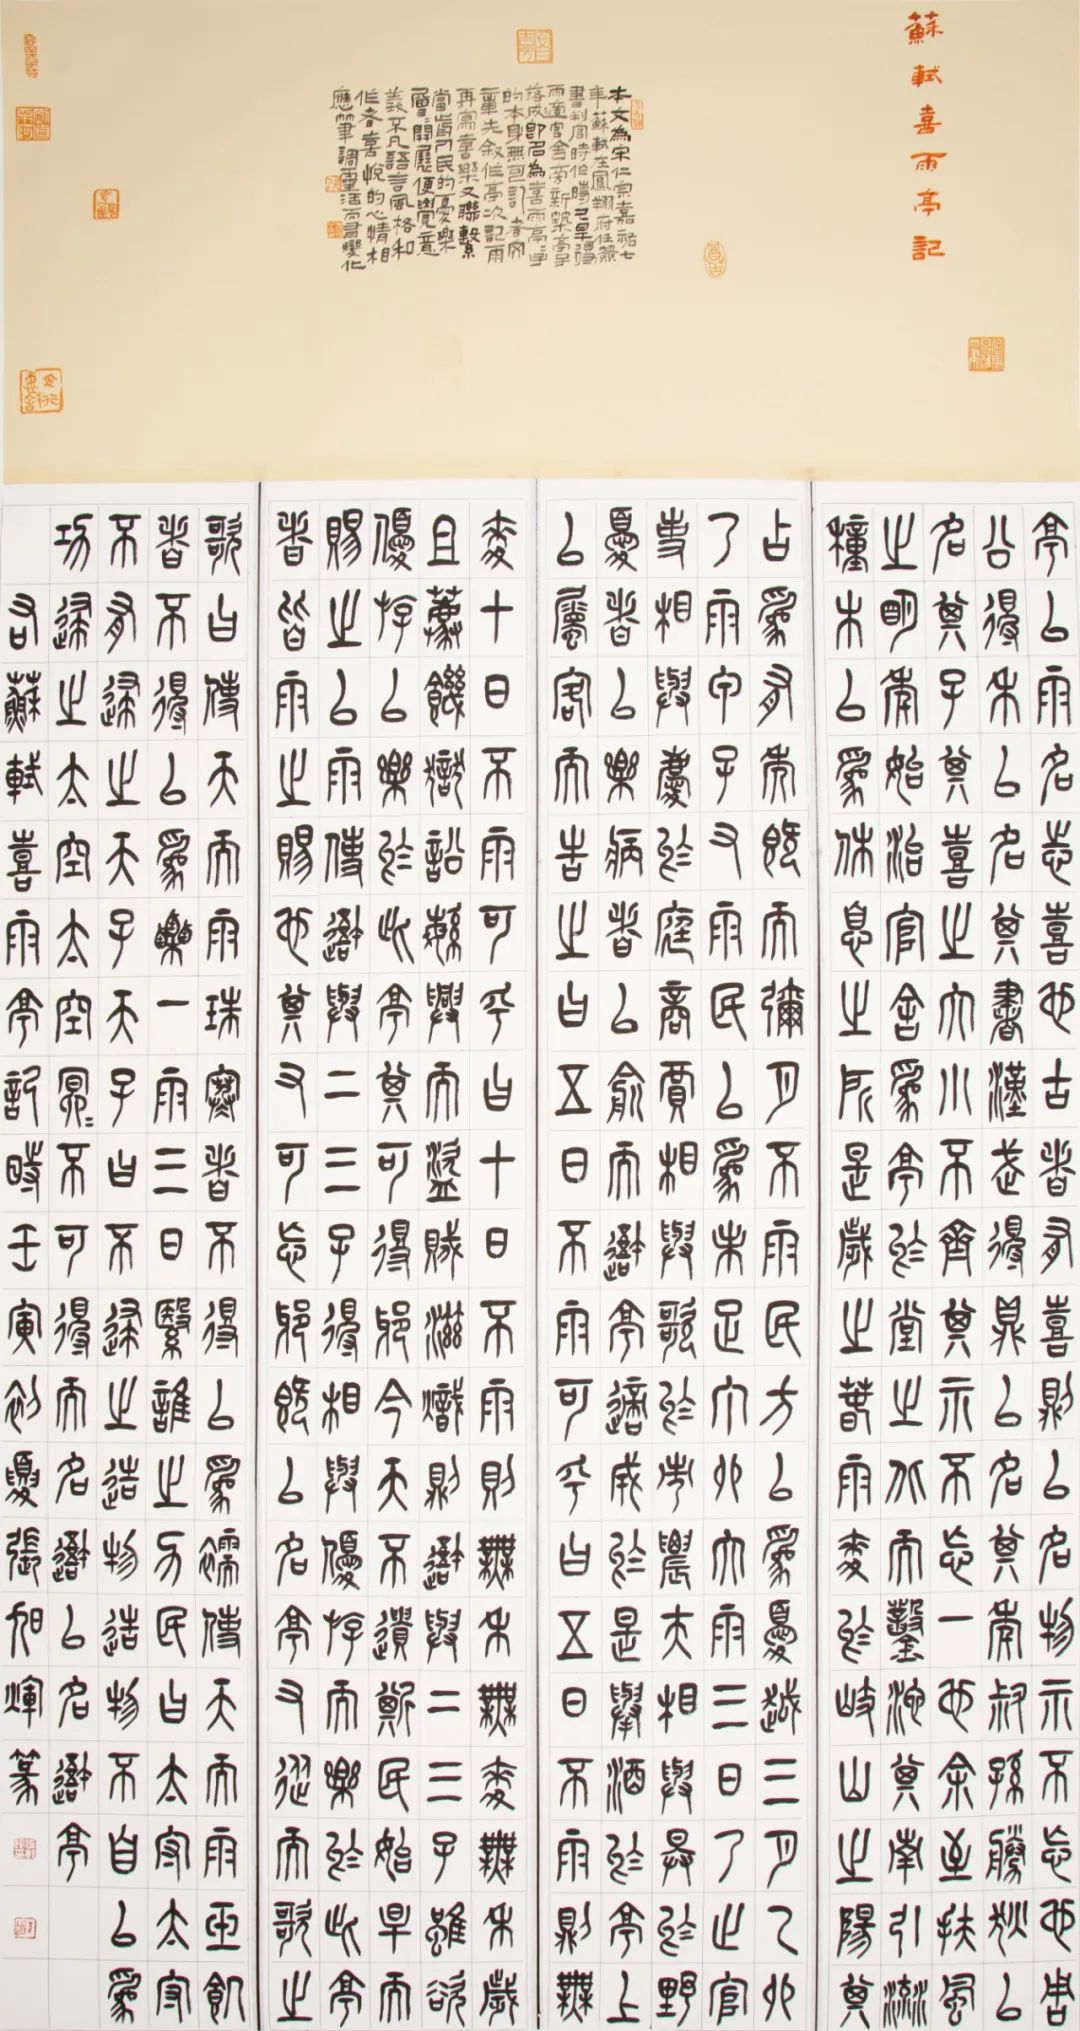 蘇軾喜雨亭記
本文為宋仁宗嘉祐七
年蘇軾在鳳翔府任簽
書判官時作時久旱得
雨適官舍旁新築亭子
落成即名為喜雨亭亭
的本身無可記者文
章先敘作亭次記雨
再寫喜樂又聯繫
當時人民的憂樂
層層開展便覺意
義不凡語言風格和
作者喜悅的心情相
應筆調靈活而富變化
亭以雨名志喜也古者有喜則以名物示不忘也周
公得禾以名其書漢武得鼎以名其年叔孫勝狄以
名其子其喜之大小不齊其示不忘一也余至扶風
之明年始治官舍為亭於堂之北而鑿池其南引流
種木以為休息之所是歲之春雨麥於岐山之陽其
占為有年既而彌月不雨民方以為憂越三月乙卯
乃雨甲子又雨民以為未足丁卯大雨三日乃止官
吏相與慶於庭商賈相與歌於市農夫相與忭於野
憂者以樂病者以愈而吾亭適成於是舉酒於亭上
以屬客而告之曰五日不雨可乎曰五日不雨則無
麥十日不雨可乎曰十日不雨則無禾無麥無禾歲
且薦饑獄訟繁興而盜賊滋熾則吾與二三子雖欲
優游以樂於此亭其可得耶今天不遺斯民始旱而
賜之以雨使吾與二三子得相與優游而樂於此亭
者皆雨之賜也其又可忘耶既以名亭又從而歌之
歌曰使天而雨珠寒者不得以為襦使天而雨玉飢
者不得以為粟一雨三日繄誰之力民曰太守太守
不有歸之天子天子曰不歸之造物造物不自以為
功歸之太空太空冥冥不可得而名吾以名吾亭
右蘇軾喜雨亭記時壬寅初夏張旭輝篆